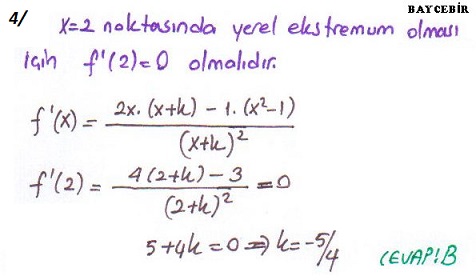 4/
BAYCEBİR
x=2 noktasında yerel ekstremum olması
için f'(2)=0 olmalıdır.
f'(x) = 2x.(x+k) - 1.(x²-1) / (x+k)²
f'(2) = 4(2+k) - 3 / (2+k)² = 0
5+4k = 0 ⇒ k = -5/4
CEVAP!B